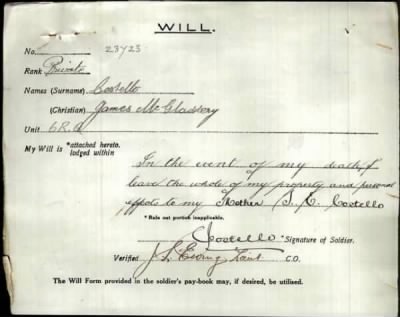 WILL.
No. 23723
Rank Private
Names (Surname) Costello
(Christian) James McGlassory
Unit 6R.Q
My Will is *attached hereto.
lodged within
In the event of my death I
leave the whole of my property and personal
effects to my Mother S. C. Costello
* Rule out portion inapplicable.
Costello Signature of Soldier.
Verified J. L. Ewing Lieut C.O.
The Will Form provided in the soldier's pay-book may, if desired, be utilised.